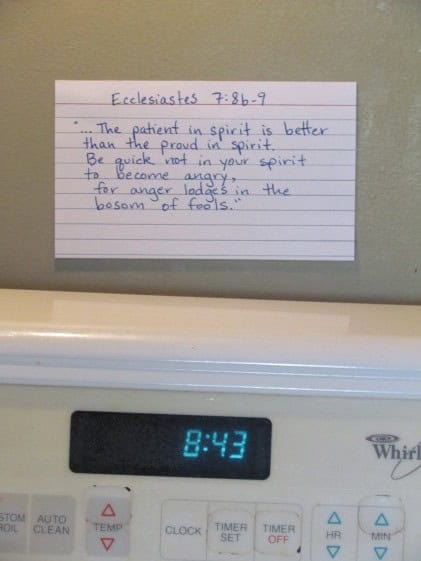 Ecclesiastes 7:8b-9
"... The patient in spirit is better
than the proud in spirit.
Be quick not in your spirit
to become angry,
for anger lodges in the
bosom of fools."
8:43
Whirl
STOM
ROIL
AUTO
CLEAN
TEMP
CLOCK
TIMER
SET
TIMER
OFF
HR
MIN